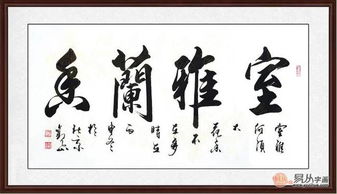 室雅蘭香
室雅
何須
大
花香
不
在多
時在
冬
於
北京
易从字画